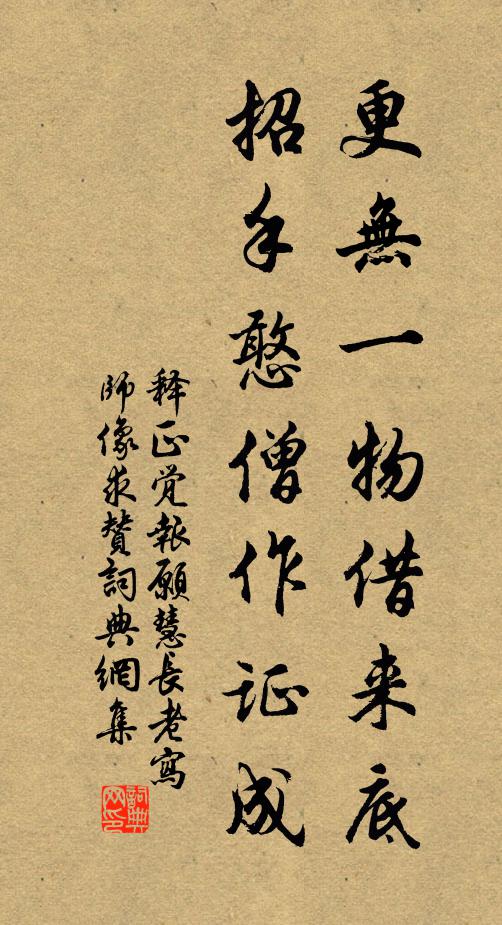 更無一物借来底
招手憨僧作证成
释正觉報願慧長老寫
師像求贊詞典網集
詞典网印